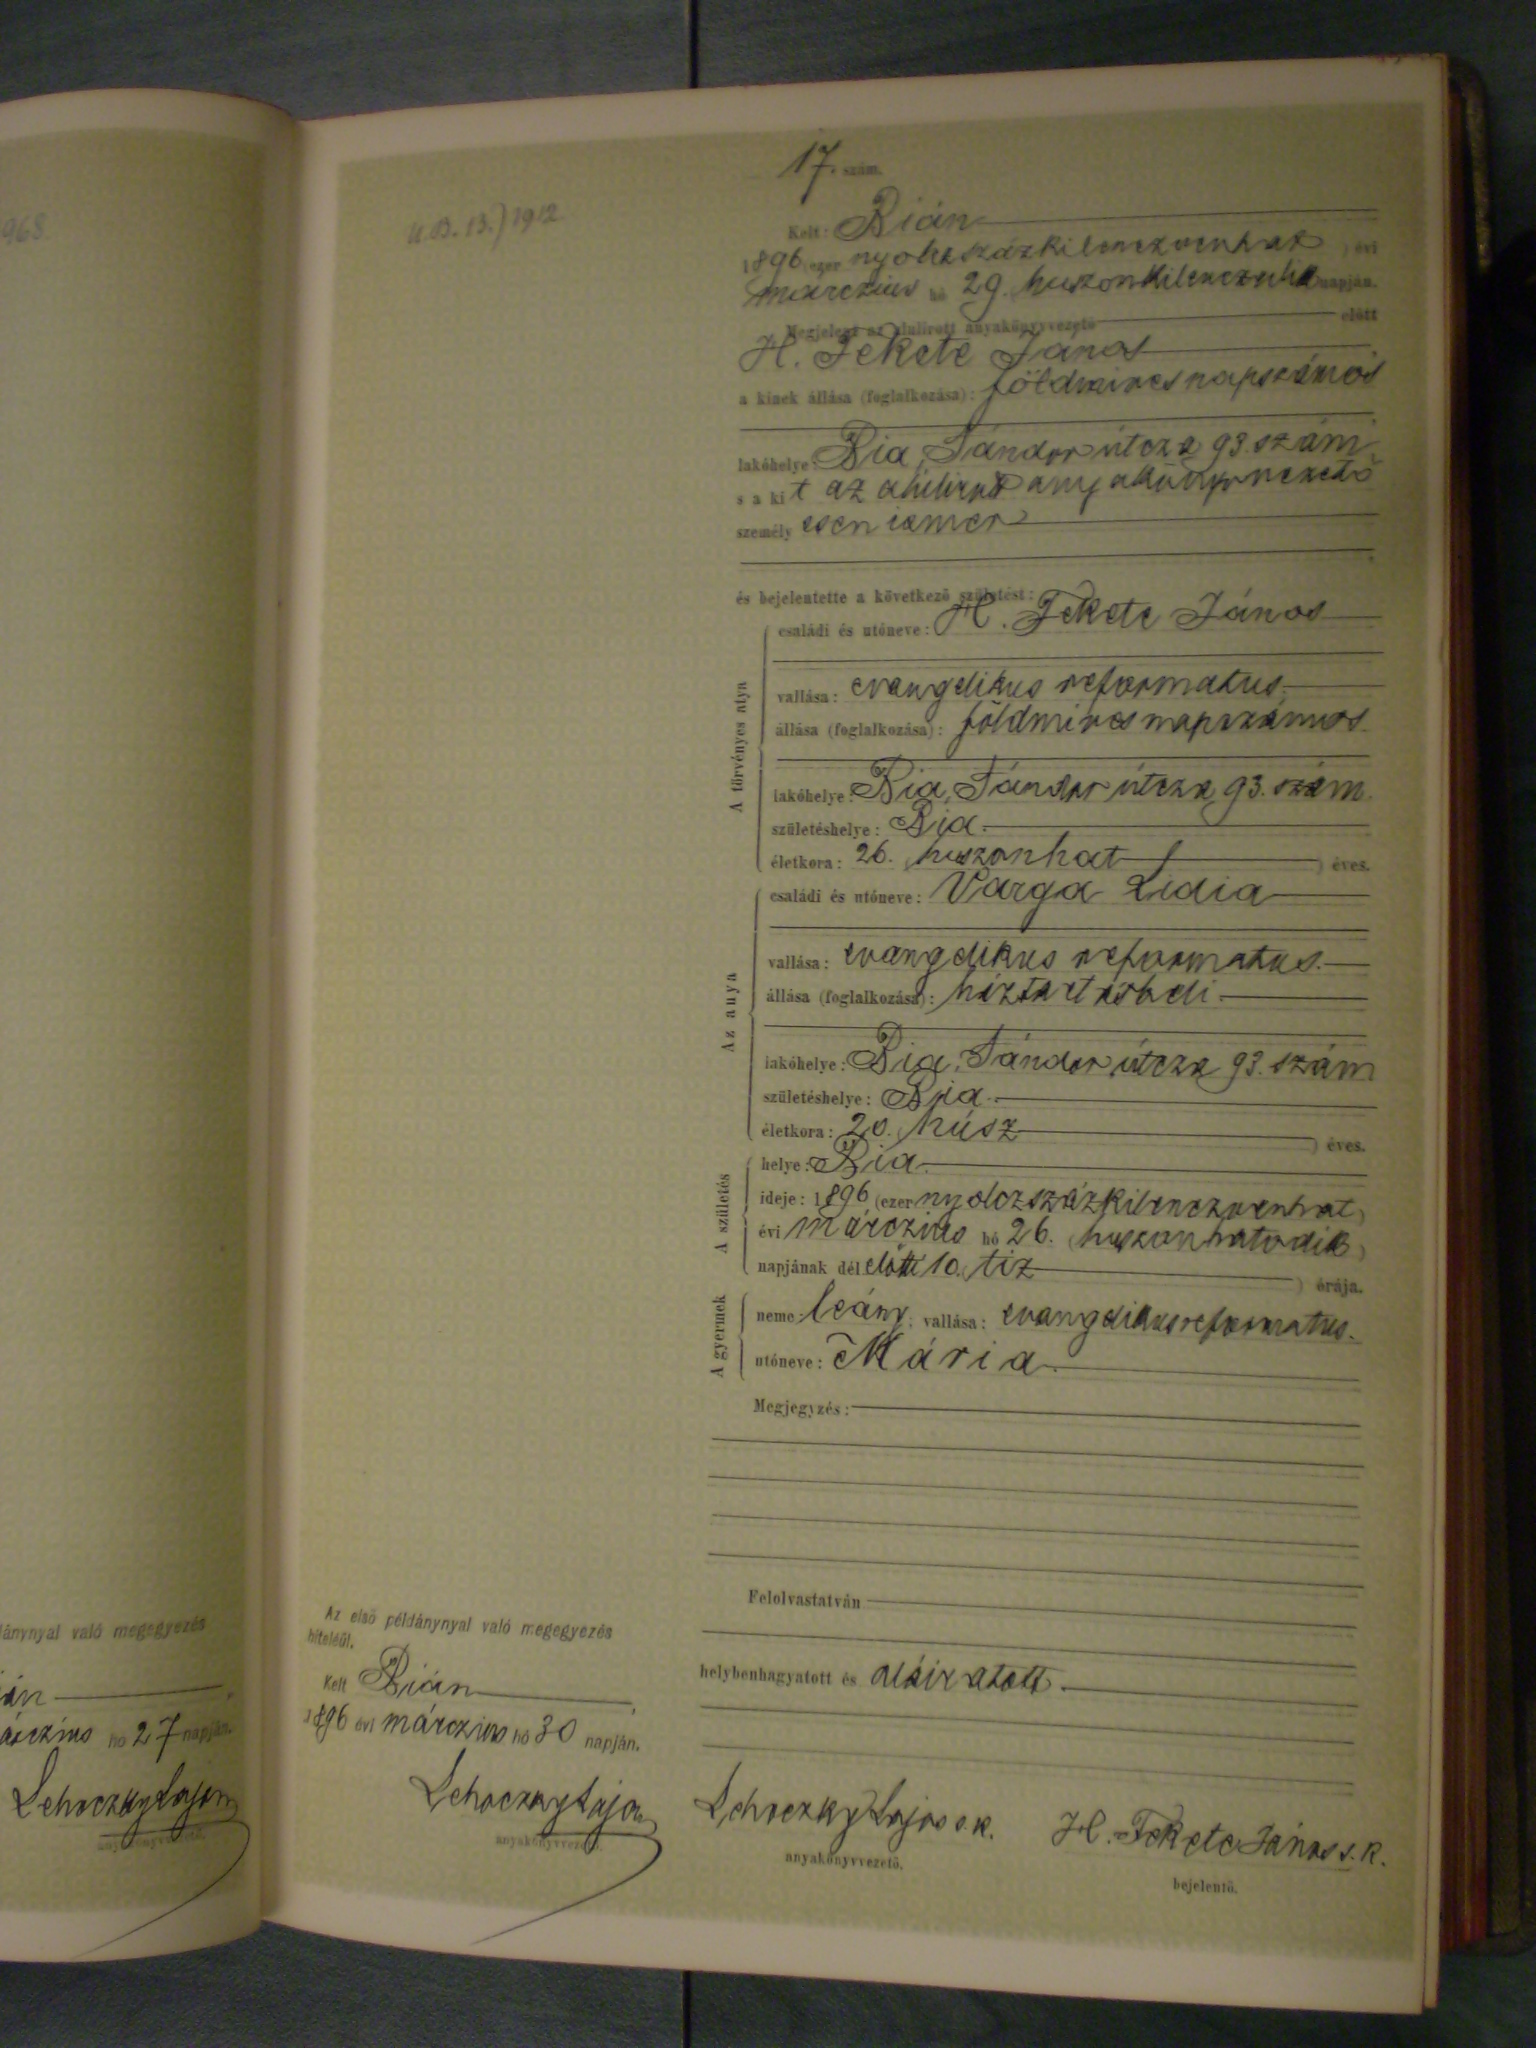 968.
U.B. 13.) 1912
17. szám.
Kelt: Bián
1896 (ezer nyolczszázkilenczvenhat) évi
márczius hó 29. huszonkilenczedik napján.
Megjelent az alulirott anyakönyvvezető előtt
H. Fekete János
a kinek állása (foglalkozása): földmives napszámos
lakóhelye: Bia, Sándor útcza 93. szám
s a kit az alulirott anyakönyvvezető
személy esen ismer
és bejelentette a következő születést:
A törvényes atya
családi és utóneve: H. Fekete János
vallása: evangelikus reformatus
állása (foglalkozása): földmives napszámos
lakóhelye: Bia, Sándor útcza 93. szám.
születéshelye: Bia.
életkora: 26. (huszonhat) éves.
Az anya
családi és utóneve: Varga Lidia
vallása: evangelikus reformatus.
állása (foglalkozása): háztartásbeli.
lakóhelye: Bia, Sándor útcza 93. szám
születéshelye: Bia.
életkora: 20. (húsz) éves.
A születés
helye: Bia.
ideje: 1896 (ezer nyolczszázkilenczvenhat)
évi márczius hó 26. (huszonhatodik)
napjának dél előtti 10. (tiz) órája.
A gyermek
neme: leány; vallása: evangelikus reformatus.
utóneve: Mária.
Megjegyzés:
Felolvastatván
helybenhagyatott és aláiratott.
Lehoczky Lajos s.k.
anyakönyvvezető.
H. Fekete János s.k.
bejelentő.
Az első példánynyal való megegyezés
hiteléűl.
Kelt Bián
1896 évi márczius hó 30 napján.
Lehoczky Lajos
anyakönyvvezető.
ánynyal való megegyezés
ián
árczius hó 27 napján.
Lehoczky Lajos
anyakönyvvezető.